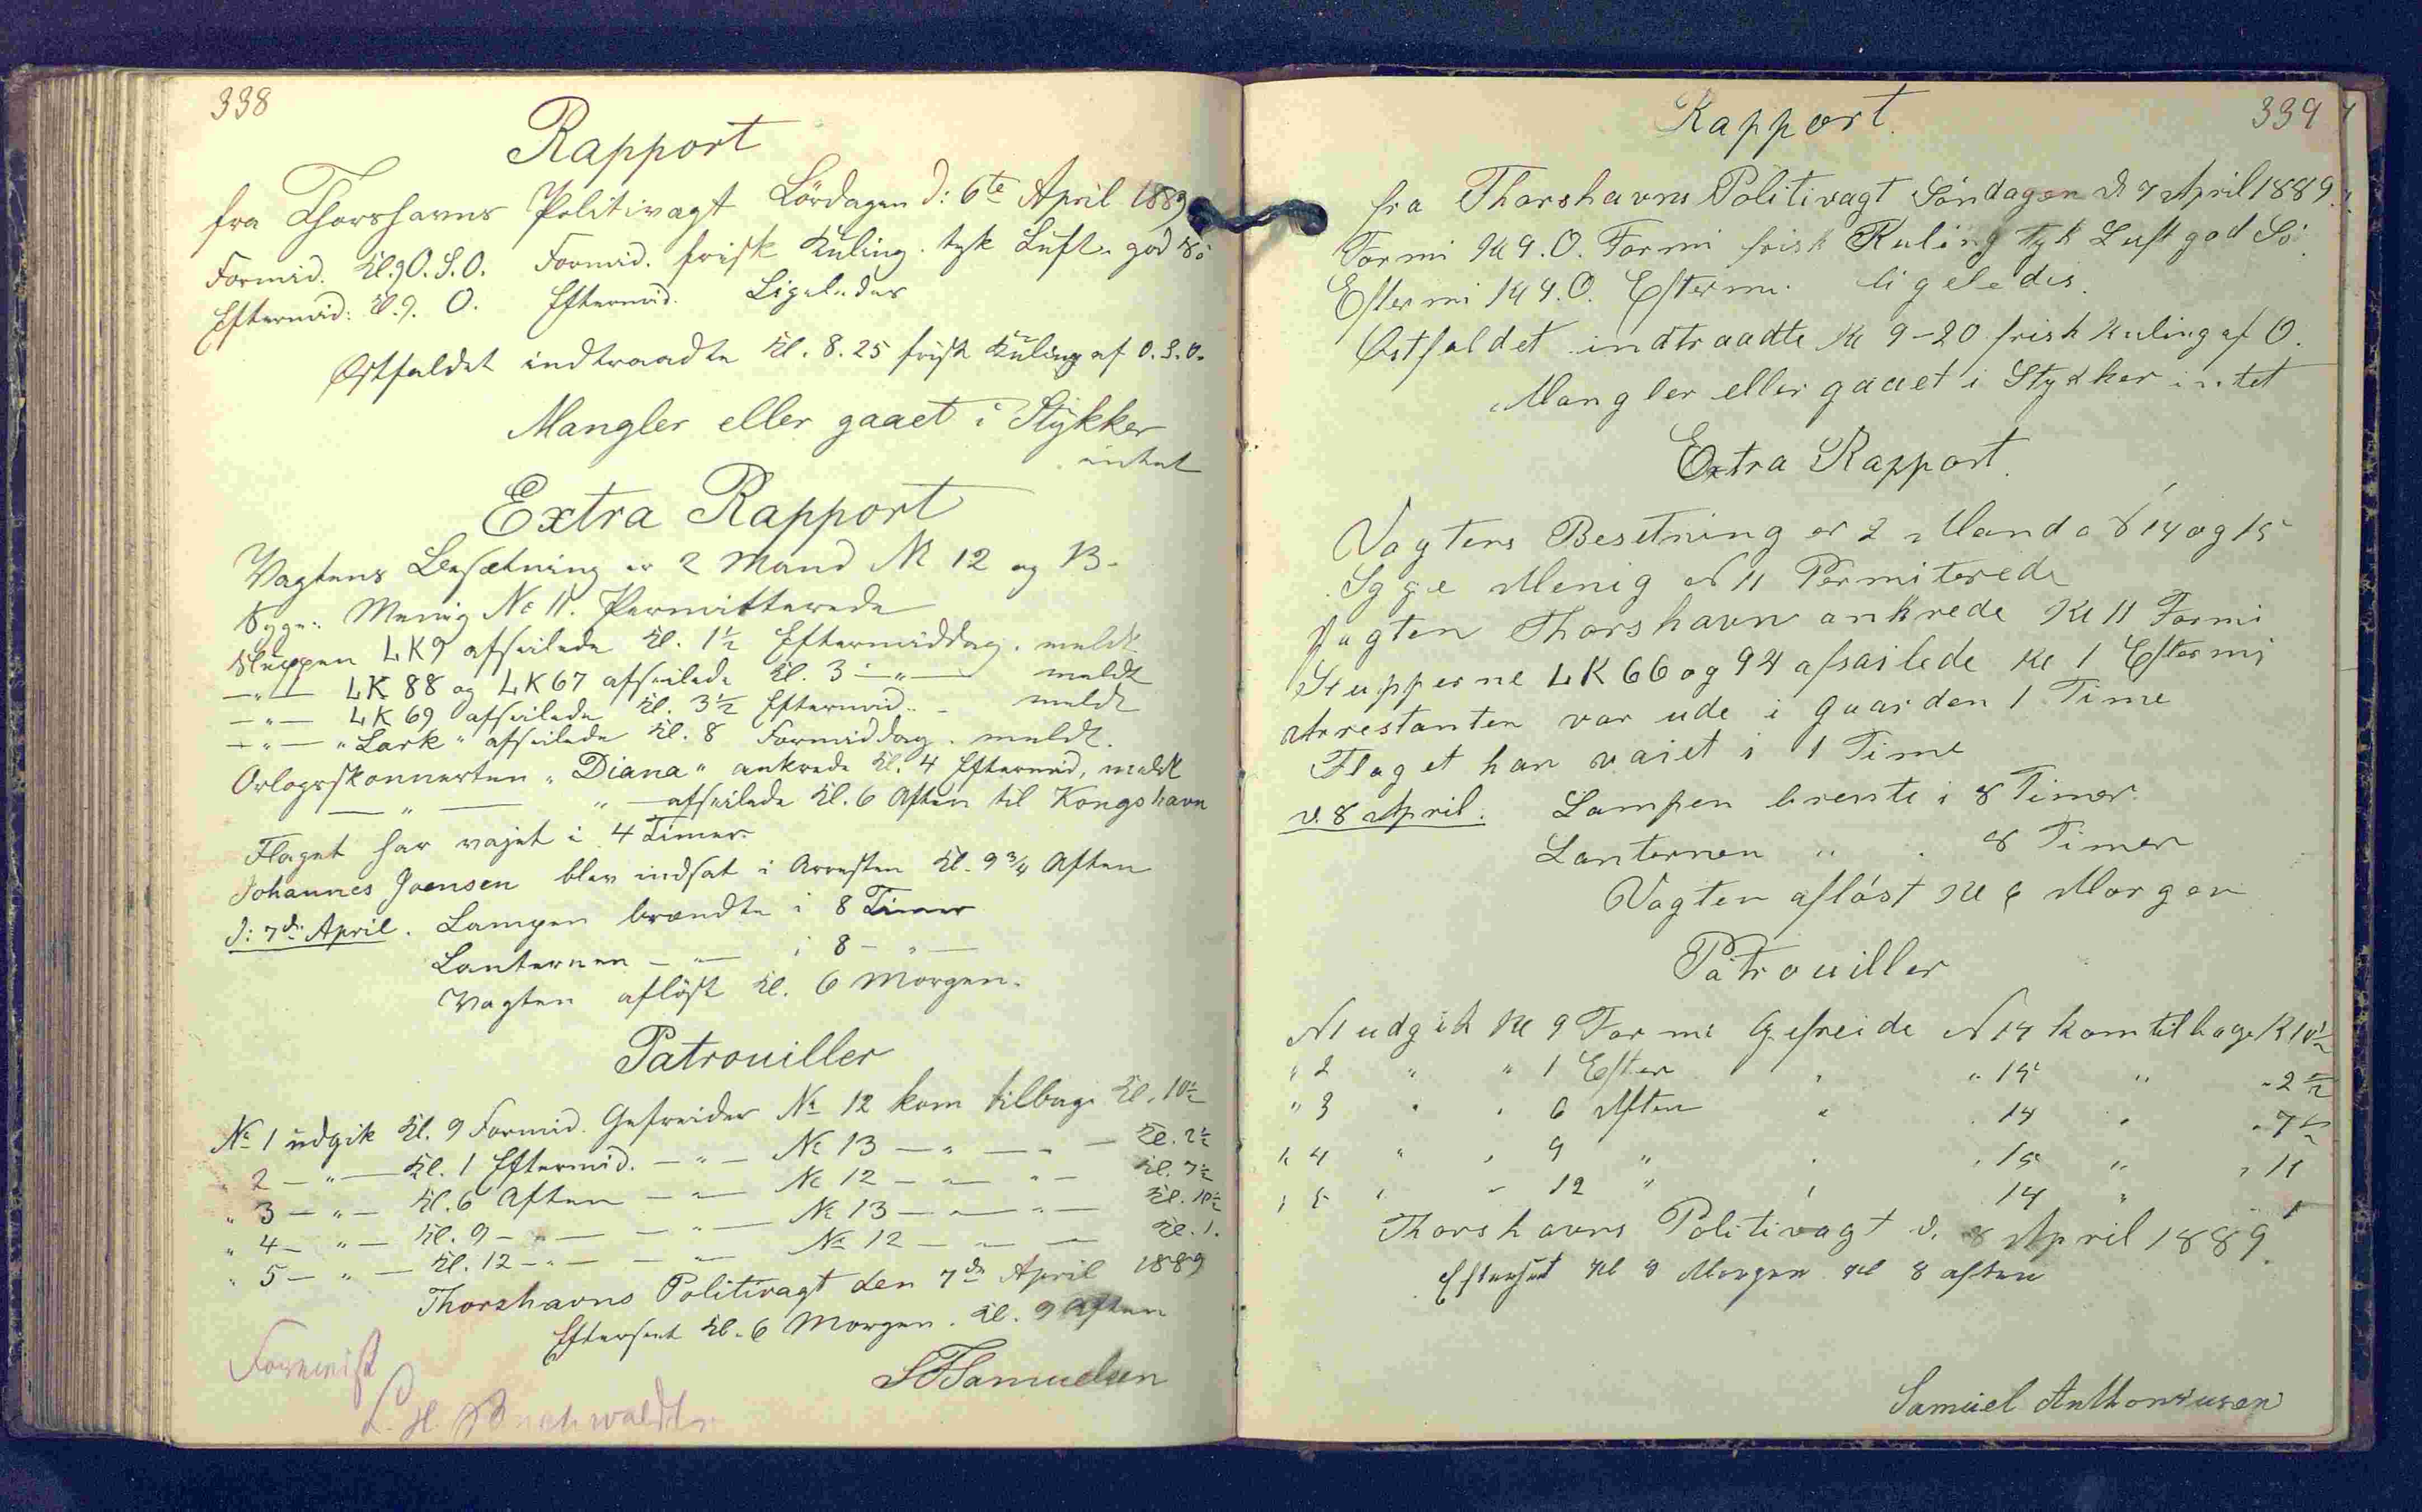 338
Rapport
fra Thorshavns Politivagt Lördagen d: 6te April 1889
Formid. Kl. 9 O.S.O. Formid. frisk Kuling. tyk Luft. god Sö
Eftermid: Kl. 9. O. Eftermid. Ligeledes
Østfaldet indtraadte Kl. 8.25 frisk Kuling af O.S.O.
Mangler eller gaaet i Stykker
intet
Extra Rapport
Vagtens Besætning er 2 Mand No 12 og 13.
Syge: Menig No 11. Permitterede
Sluppen LK9 afseilede Kl. 1½ Eftermiddag. meldt
—"— LK 88 og LK67 afseilede Kl. 3 —"— meldt
—"— LK 69 afseilede Kl. 3½ Eftermid. — meldt
—"— "Lark" afseilede Kl. 8 Formiddag. meldt.
Orlogsskonnerten "Diana" ankrede Kl. 4 Eftermid, meldt
—"— " — afseilede Kl. 6 Aften til Kongshavn
Flaget har vajet i 4 Timer.
Johannes Joensen blev indsat i Arresten Kl. 9¾ Aften
d: 7de April. Lampen brændte i 8 Timer
Lanternen —"— i 8 —"—
Vagten aflöst Kl. 6 Morgen.
Patrouiller
No 1 udgik Kl. 9 Formid. Gefreider No 12 kom tilbage Kl. 10½
" 2 —"— Kl. 1 Eftermid. —"— No 13 —"— — Kl. 2½
" 3 —"— Kl. 6 Aften —"— No 12 —"— "— Kl. 7½
" 4 —"— Kl. 9 —"— —"— No 13 —"— "— Kl. 10½
" 5 —"— Kl. 12 —"— —"— No 12 —"— — Kl. 1.
Thorshavns Politivagt den 7de April 1889
Efterseet Kl. 6 Morgen. Kl. 9 Aften
Samuelsen
Buchwaldt
339
Rapport.
fra Thorshavns Politivagt Söndagen d 7 April 1889.
Formi Kl 9. O. Formi frisk Kuling tyk Luft god Sö
Eftermi Kl 9. O. Eftermi. ligeledis.
Østfaldet indtraadte Kl 9-20 frisk Kuling af O.
Mangler eller gaaet i Stykker intet
Extra Rapport.
Vagtens Besetning er 2 Mand No 14 og 15
Syge Menig No 11 Permiterede
Jagten Thorshavn ankrede Kl 11 Formi
Slupperne LK 66 og 94 afsailede Kl 1 Eftermi
Arrestanten var ude i Gaarden 1 Time
Flaget har vaiet i 1 Time
d. 8 April. Lampen brente i 8 Timer.
Lanternen " 8 Timer
Vagten aflöst Kl 6 Morgen
Patrouiller
N 1 udgik Kl 9 Formi Gefreide N 14 kom tilbage K 10½
" 2 " " 1 Efter " " 15 " " 2½
" 3 " " 6 Aften " 14 " " 7½
" 4 " " 9 " " " 15 " " 11
" 5 " " 12 " " 14 " 1
Thorshavns Politivagt d. 8 April 1889.
Efterset Kl 8 Morgen Kl 8 aften
Samuel Anthoniusen